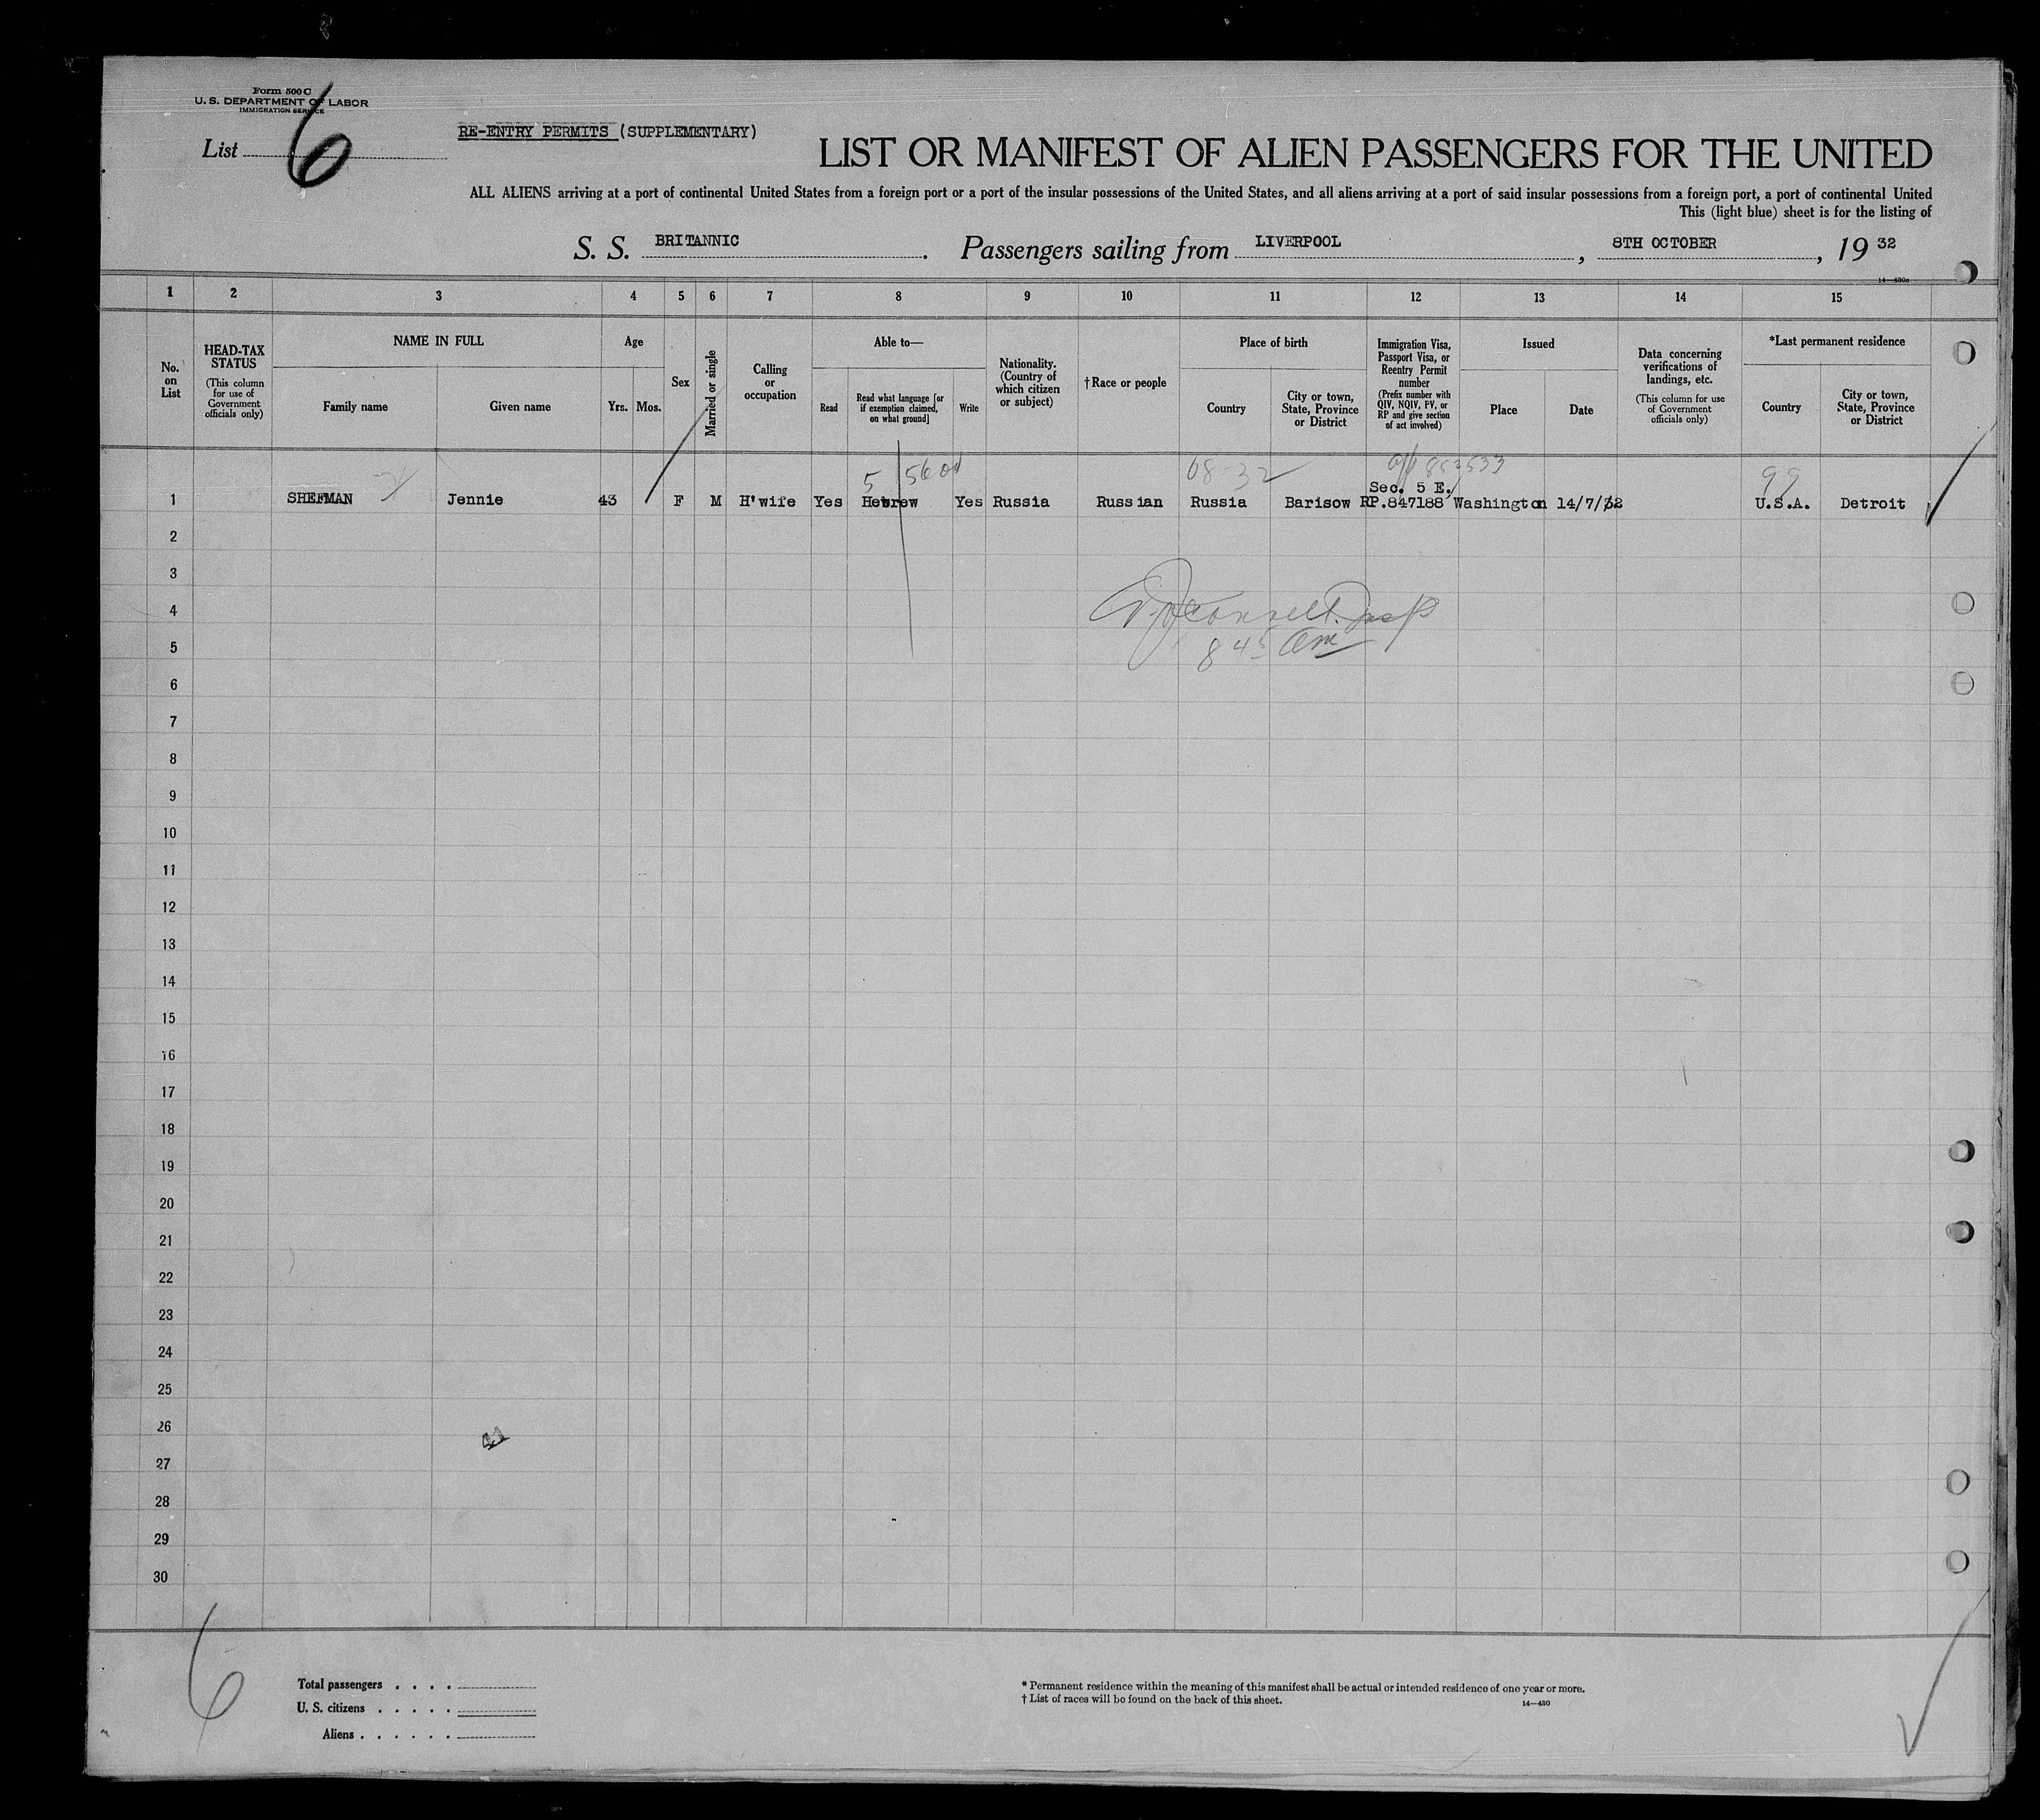 Form 500 C
U. S. DEPARTMENT OF LABOR
IMMIGRATION SERVICE
List 6
RE-ENTRY PERMITS (SUPPLEMENTARY)
LIST OR MANIFEST OF ALIEN PASSENGERS FOR THE UNITED
ALL ALIENS arriving at a port of continental United States from a foreign port or a port of the insular possessions of the United States, and all aliens arriving at a port of said insular possessions from a foreign port, a port of continental United
This (light blue) sheet is for the listing of
S. S. BRITANNIC. Passengers sailing from LIVERPOOL, 8TH OCTOBER, 19 32
14—430a
1 2 3 4 5 6 7 8 9 10 11 12 13 14 15
No. on List
HEAD-TAX STATUS
(This column for use of Government officials only)
NAME IN FULL
Family name
Given name
Age
Yrs.
Mos.
Sex
Married or single
Calling or occupation
Able to—
Read
Read what language [or if exemption claimed, on what ground]
Write
Nationality. (Country of which citizen or subject)
†Race or people
Place of birth
Country
City or town, State, Province or District
Immigration Visa, Passport Visa, or Reentry Permit number
(Prefix number with QIV, NQIV, PV, or RP and give section of act involved)
Issued
Place
Date
Data concerning verifications of landings, etc.
(This column for use of Government officials only)
*Last permanent residence
Country
City or town, State, Province or District
5 08-32 882533 99
Sec. 5 E.
1 SHEFMAN Jennie 43 F M H'wife Yes Hebrew Yes Russia Russian Russia Barisow RP.847188 Washington 14/7/32 U.S.A. Detroit
2
3
4
5
8 45 am
6
7
8
9
10
11
12
13
14
15
16
17
18
19
20
21
22
23
24
25
26
27
28
29
30
6
Total passengers . . . .
U. S. citizens . . . . .
Aliens . . . . . .
* Permanent residence within the meaning of this manifest shall be actual or intended residence of one year or more.
† List of races will be found on the back of this sheet.
14—430